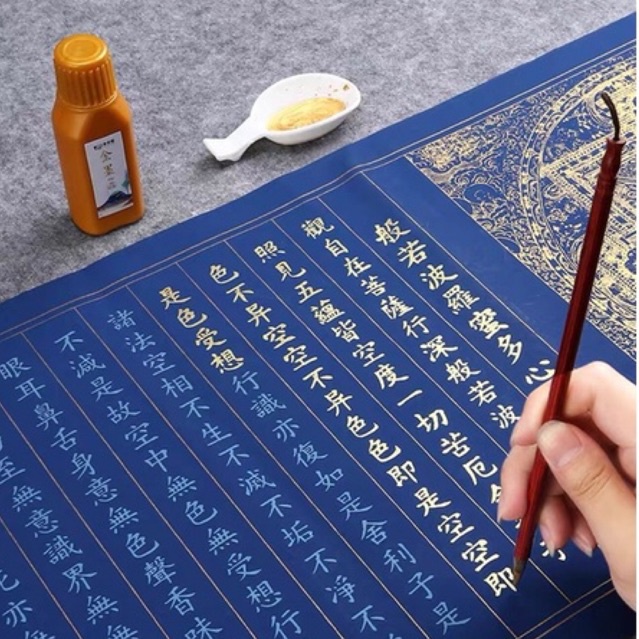 金墨
般若波羅蜜多心
觀自在菩薩行深般若波
照見五蘊皆空度一切苦厄舍子
色不异空空不异色色即是空空即
是色受想行識亦復如是舍利子是
諸法空相不生不滅不垢不凈不
不減是故空中無色無受想行
眼耳鼻舌身意無色聲香味
至無意識界無無
亦